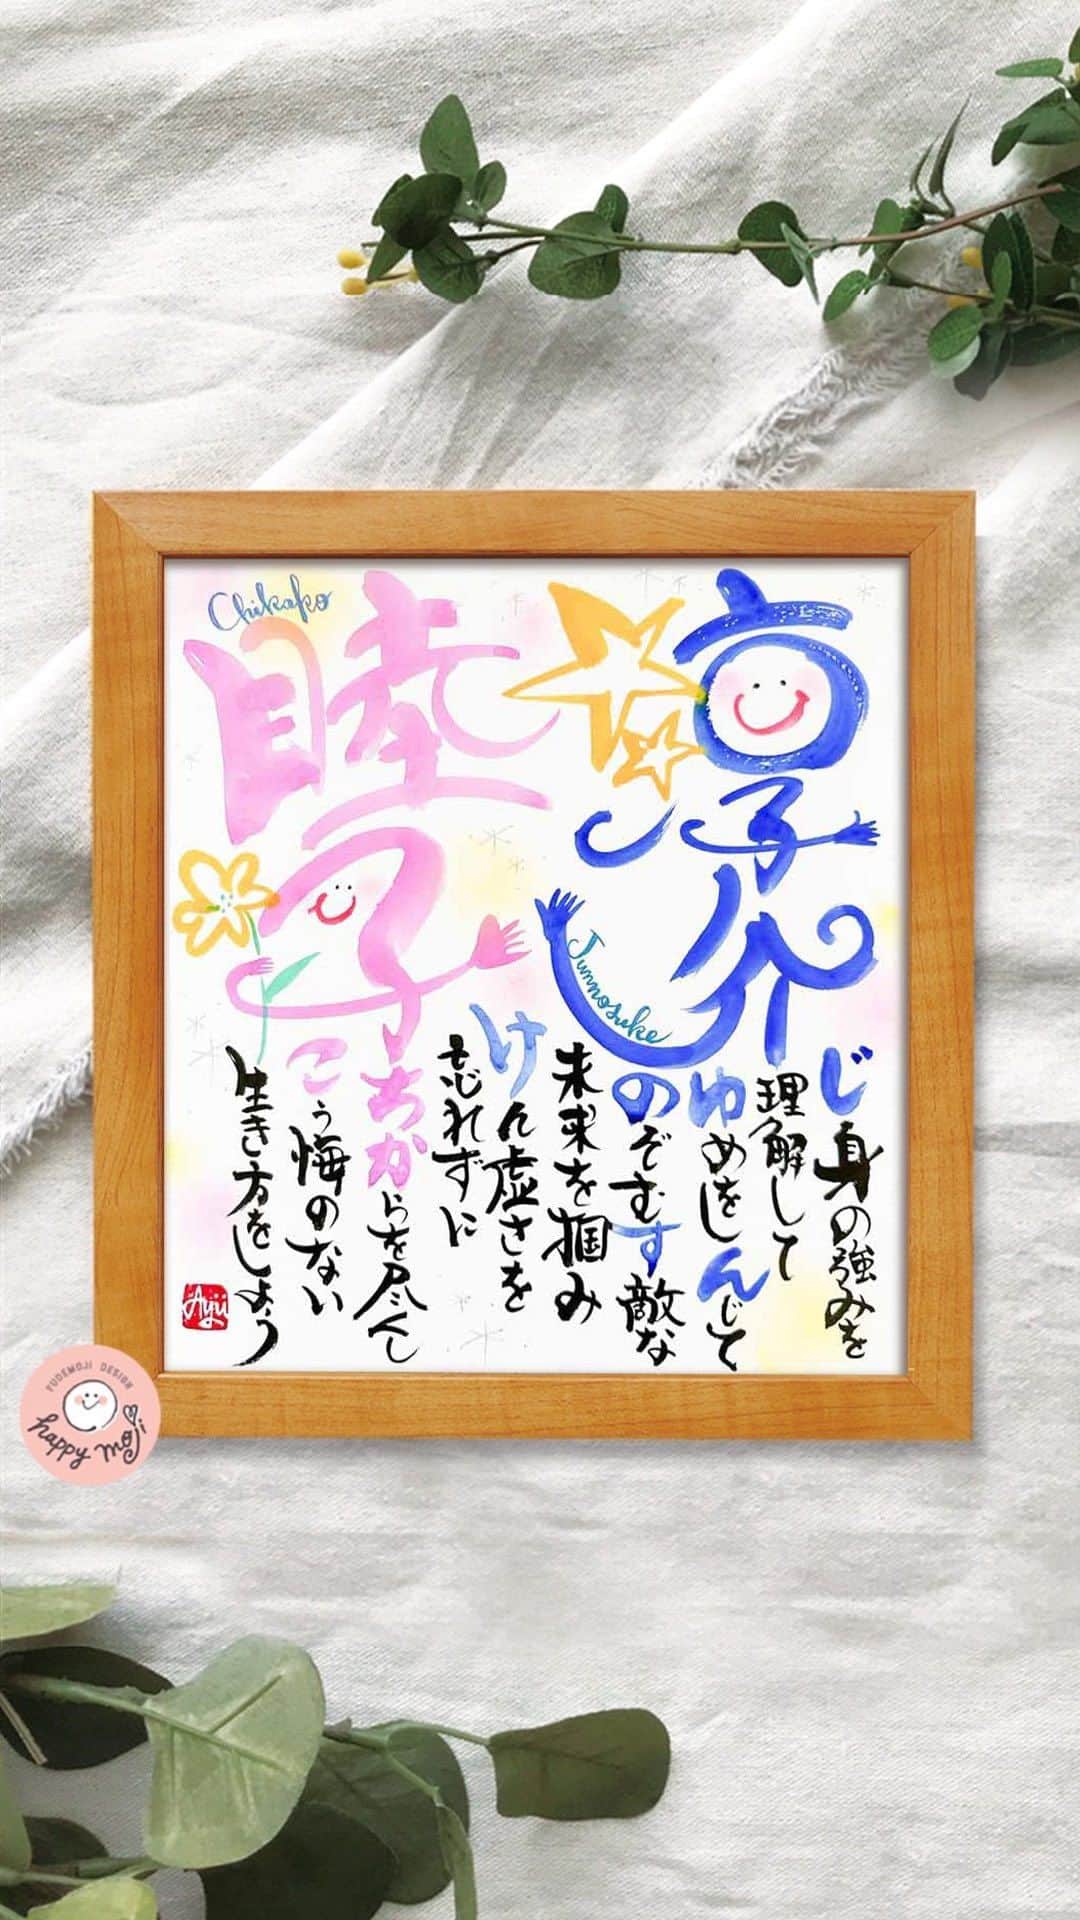 淳介
Junnosuke
睦子
Chikako
じ身の強みを
理解して
ゆめをしんじて
のぞむす敵な
未来を掴み
けん虚さを
忘れずに
ちからを尽くし
こう悔のない
生き方をしよう
Ayu
FUDEMOJI DESIGN
happy moji